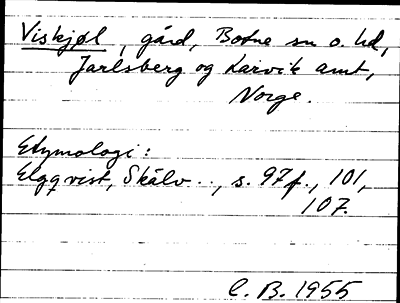 Viskjøl, gård, Botne sn o. hd,
Jarlsberg og Larvik amt,
Norge.
Etymologi:
Elgqvist, Skälv.., s. 97f., 101,
107.
C. B. 1955